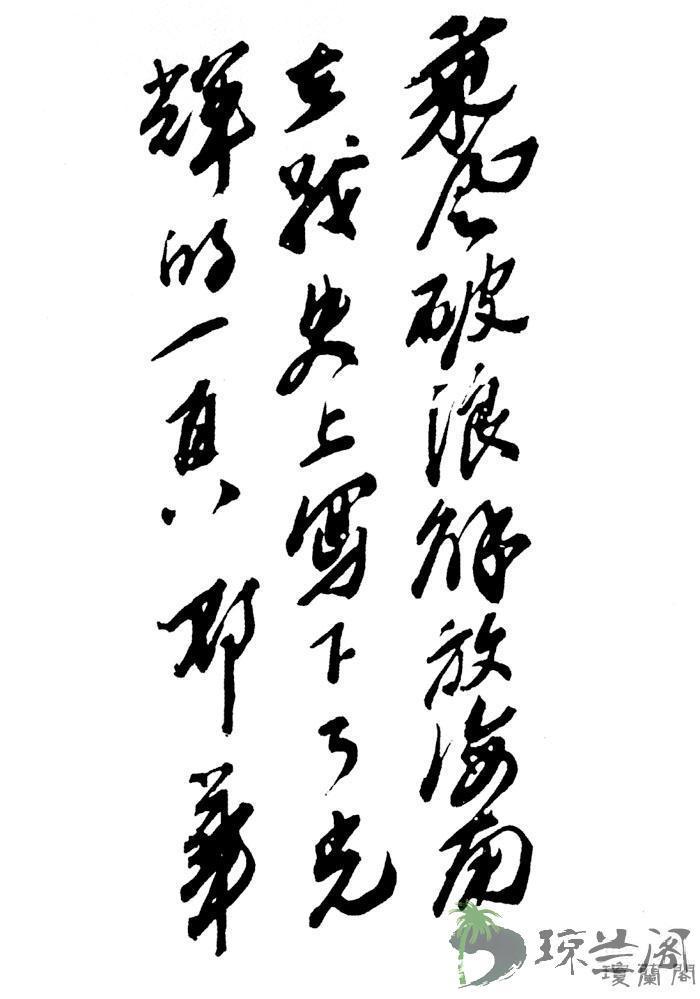 乘风破浪解放海南
在战史上寫下了光
輝的一頁 鄧華
琼兰阁
瓊蘭閣